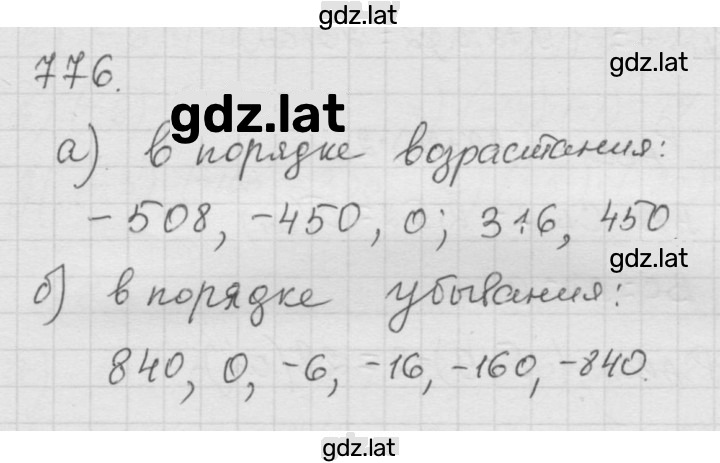 gdz.lat
776.
gdz.lat
gdz.lat
а) в порядке возрастания:
-508, -450, 0; 316, 450.
gdz.lat
б) в порядке убывания:
840, 0, -6, -16, -160, -840.
gdz.lat